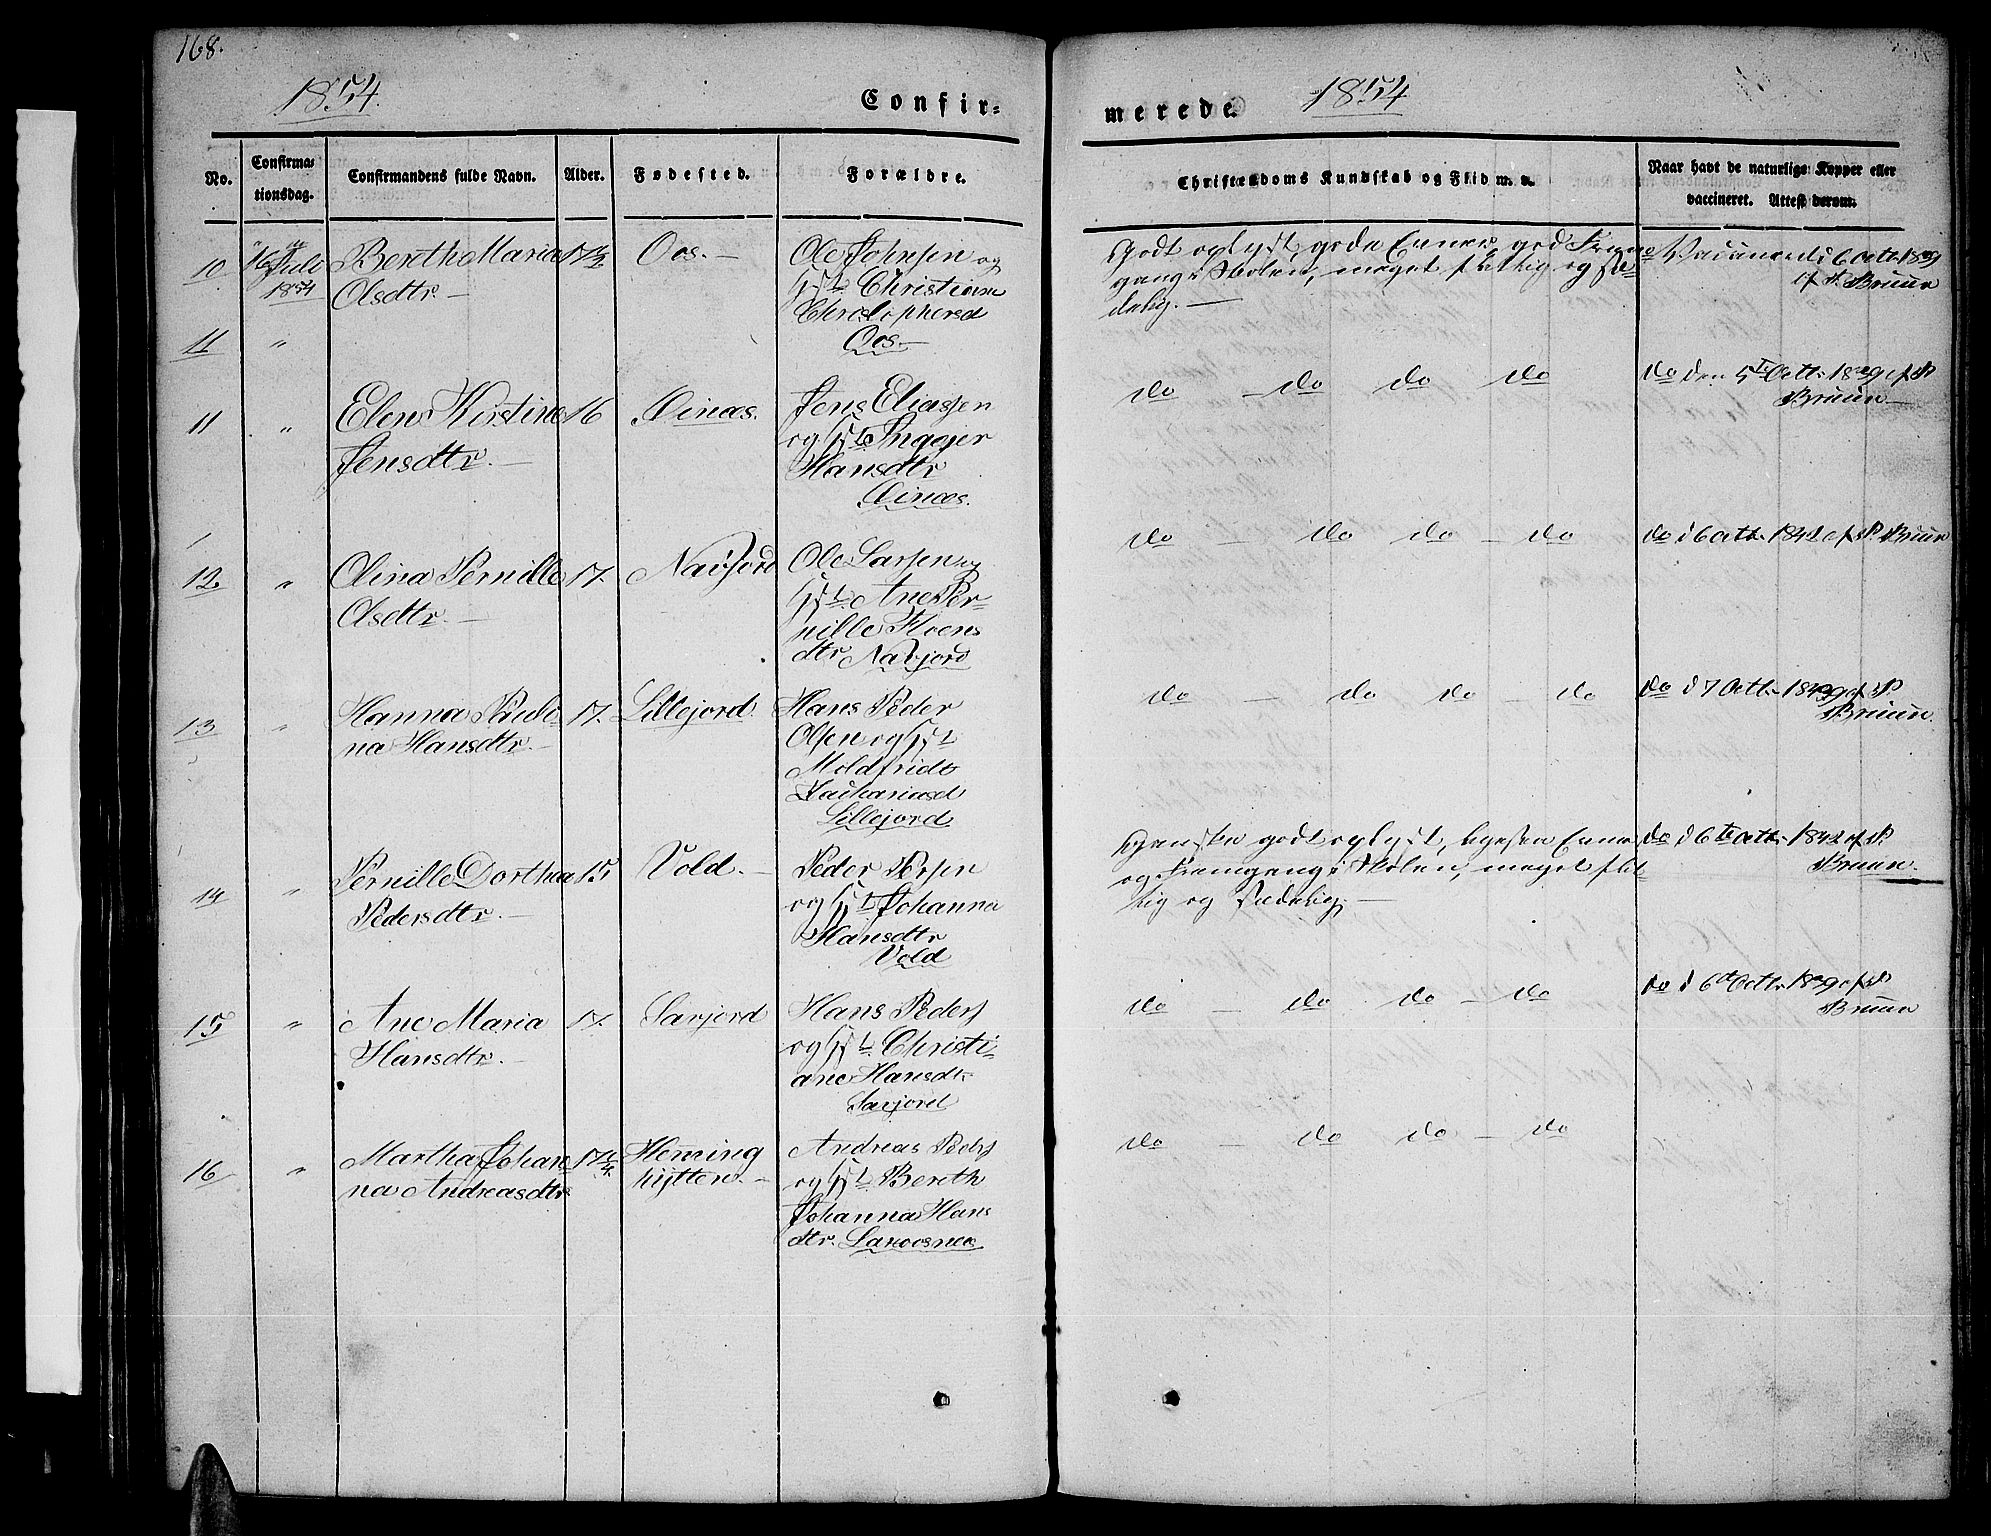 168.
1854.
Confir-
merede.
1854
No.
Confirma-
tionsdag.
Confirmandens fulde Navn.
Alder.
Fødested.
Forældre.
Christendoms Kundskab og Flid m. v.
Naar havt de naturlige Kopper eller
vaccineret. Attest derom.
10
16
Juli
1854
Bereth Maria
Olsdtr.
17½
Oos.
Ole Johnsen og
Christian
Christophersd
Oos.
Godt oplyst, gode Evner, god Frem-
gang i Skolen, meget flittig og sæ-
delig.
Vaccinered d 6 Octb.
af P. Bruun
11
"
11
"
Elen Kirstine
Jensdtr.
16
Einæs.
Jens Eliassen
og Inggjer
Hansdtr
Einæs.
do - do do do
do den 5te Octb. af P
Bruun
12
"
Olina Pernille
Olsdtr.
17.
Navjord
Ole Larsen og
Ane Per-
nille
dtr Navjord
do - do do - do
do d 6 Octb. 1842 af P Bruun
13
"
Hanna Pauli-
na Hansdtr.
17.
Lillejord.
Hans Peder
Olsen og
Moldfrid
Zachariasd
Lillejord
do - do do - do
do d 7 Octb. af P.
Bruun.
14
"
Pernille Dorthea
Pedersdtr.
15
Vold.
Peder
og Johanna
Hansdtr
Vold
Ganske godt oplyst, ligesaa Evne
og Fremgang i Skolen, meget flit-
tig og sædelig.
do d 6te Octb. 1842 af P.
Bruun.
15
"
Ane Maria
Hansdtr.
17.
Savjord
Hans Peders
og Christi-
ane Hansdtr
Savjord
do - do do - do
do d 6te Octb. af P
Bruun
16
"
Martha Johan-
na Andreasdtr.
17¼.
Heming
hytten.
Andreas Peders
og Bereth
Johanna Hans
dtr.
do - do do - do